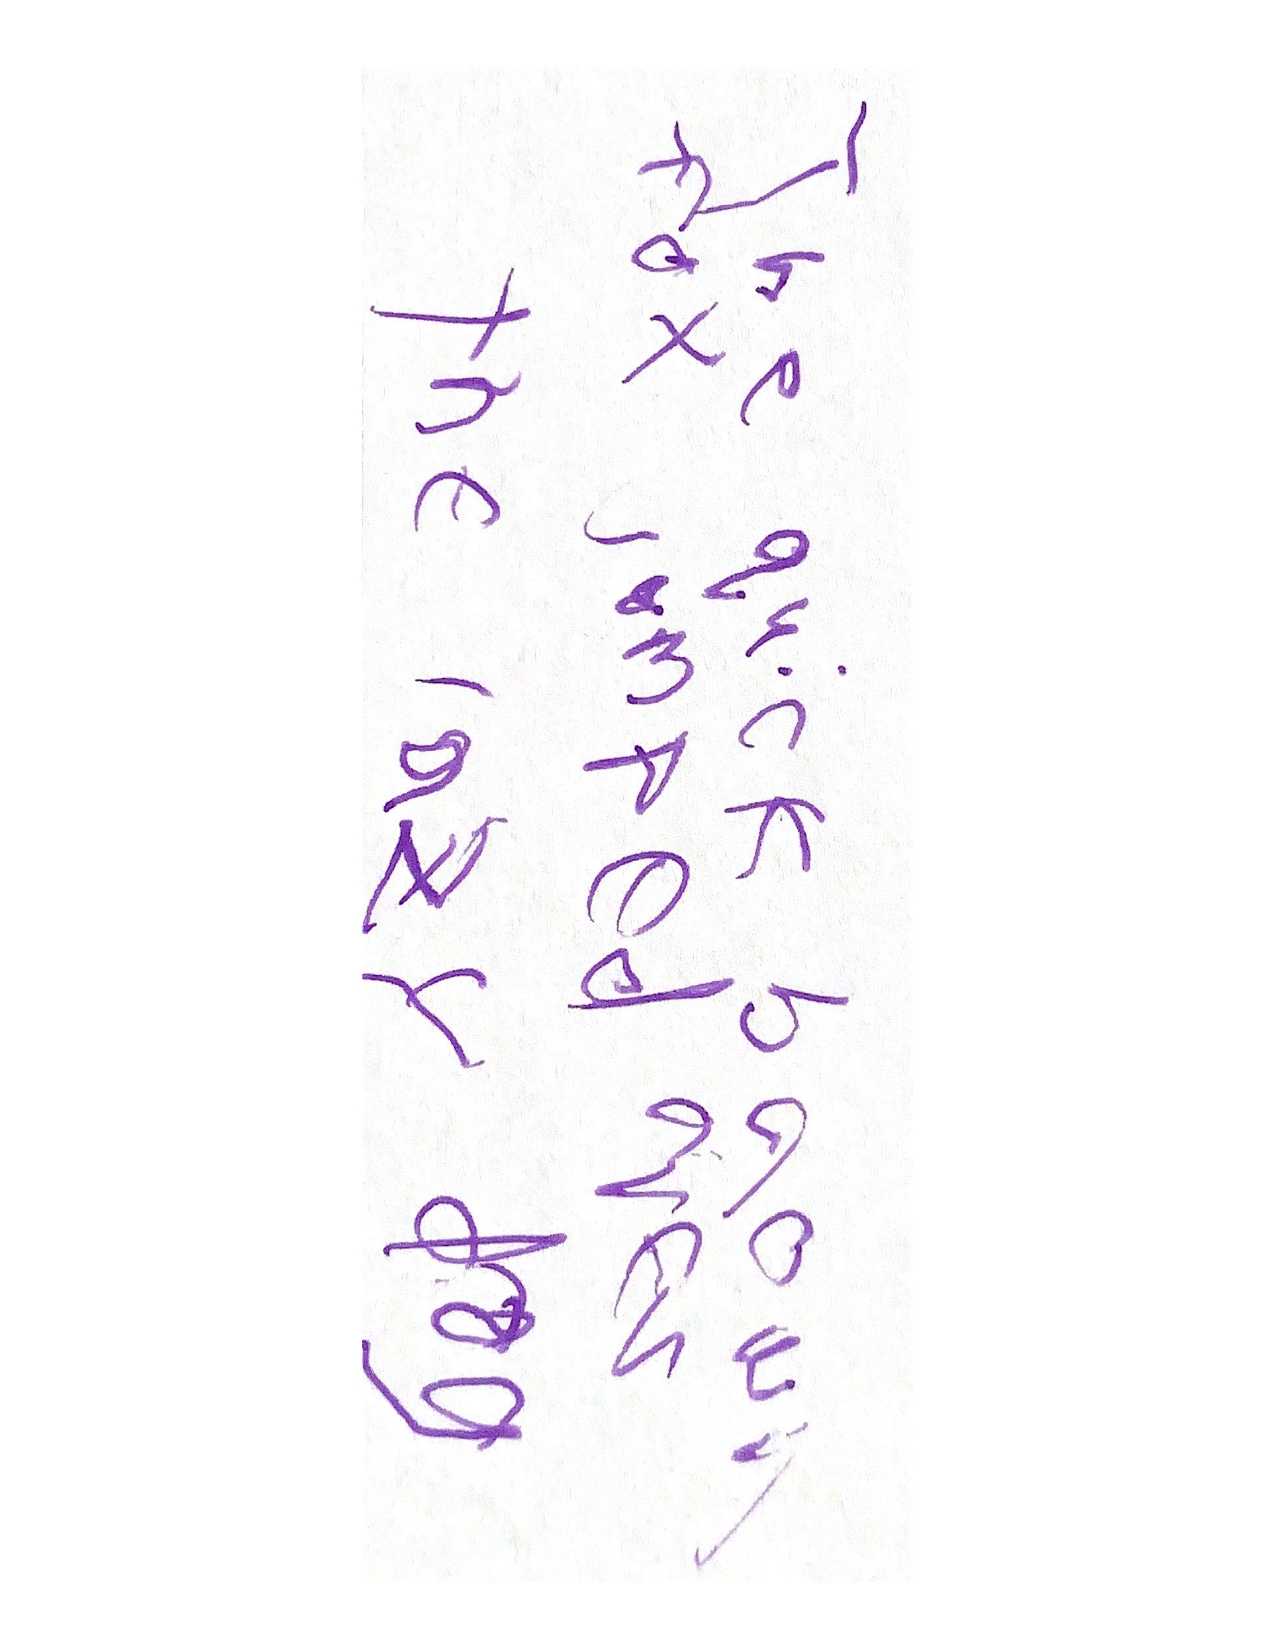 The quick brown
fox jumped over
the lazy dog